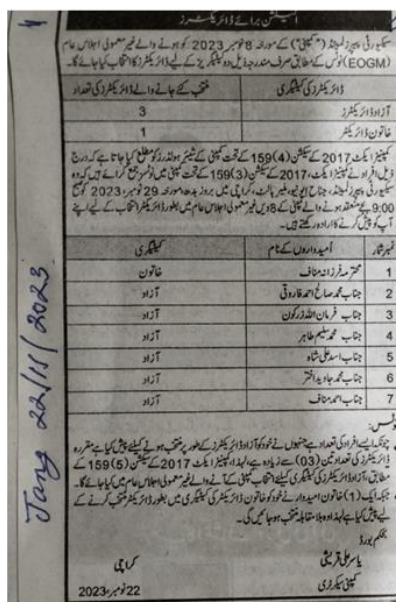 الیکشن برائے ڈائریکٹرز
سیکیورٹی پیپرز لمیٹڈ ("کمپنی") کے مورخہ 8 نومبر 2023 کو ہونے والے غیر معمولی اجلاس عام
(EOGM) نوٹس کے مطابق صرف مندرجہ ذیل دو کیٹیگریز کے لیے ڈائریکٹرز کا انتخاب کیا جائے گا۔
ڈائریکٹرز کی کیٹیگری منتخب کئے جانے والے ڈائریکٹرز کی تعداد
آزاد ڈائریکٹرز 3
خاتون ڈائریکٹر 1
کمپنیز ایکٹ 2017 کے سیکشن (4)159 کے تحت کمپنی کے شیئر ہولڈرز کو مطلع کیا جاتا ہے کہ درج
ذیل افراد نے کمپنیز ایکٹ، 2017 کے سیکشن (3)159 کے تحت کمپنی میں نوٹسز جمع کرائے ہیں کہ وہ
سیکیورٹی پیپرز لمیٹڈ، جناح ایونیو، ملیر ہالٹ، کراچی میں بروز بدھ، مورخہ 29 نومبر، 2023 کو صبح
9:00 بجے منعقد ہونے والے کمپنی کے 8ویں غیر معمولی اجلاس عام میں بطور ڈائریکٹر انتخاب کے لیے اپنے
آپ کو پیش کرنے کا ارادہ رکھتے ہیں۔
نمبر شمار امیدواروں کے نام کیٹیگری
1 محترمہ فرزانہ مناف خاتون
2 جناب محمد صالح احمد فاروقی آزاد
3 جناب فرمان اللہ زرکون آزاد
4 جناب محمد سلیم طاہر آزاد
5 جناب اسد علی شاہ آزاد
6 جناب محمد جاوید اختر آزاد
7 جناب احمد مناف آزاد
نوٹس:
چونکہ ایسے افراد کی تعداد ہے جنہوں نے خود کو آزاد ڈائریکٹرز کے طور پر منتخب ہونے کیلئے پیش کیا ہے مقررہ
ڈائریکٹرز کی تعداد تین (03) سے زیادہ ہے، لہذا، کمپنیز ایکٹ 2017 کے سیکشن (5)159 کے
مطابق، آزاد ڈائریکٹرز کی کیٹیگری کیلئے انتخاب کمپنی کے آنے والے غیر معمولی اجلاس عام میں کیا جائے گا۔
چونکہ ایک (1) خاتون امیدوار نے خود کو خاتون ڈائریکٹر کی کیٹیگری میں بطور ڈائریکٹر منتخب کرنے کے
لیے پیش کیا ہے لہذا وہ بلا مقابلہ منتخب ہو جائیں گی۔
بحکم بورڈ
یاسر علی قریشی کراچی
کمپنی سیکرٹری 22 نومبر، 2023
Jang 22/11/2023